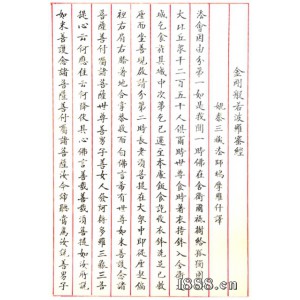 金剛般若波羅蜜經
姚秦三藏法師鳩摩羅什譯
法會因由分第一如是我聞一時佛在舍衛國祇樹給孤獨園與
大比丘眾千二百五十人俱爾時世尊食時著衣持鉢入舍衛
城乞食於其城中次第乞已還至本處飯食訖收衣鉢洗足已敷
座而坐善現啟請分第二時長老須菩提在大眾中即從座起偏
袒右肩右膝著地合掌恭敬而白佛言希有世尊如來善護念諸
菩薩善付囑諸菩薩世尊善男子善女人發阿耨多羅三藐三菩
提心云何應住云何降伏其心佛言善哉善哉須菩提如汝所說
如來善護念諸菩薩善付囑諸菩薩汝今諦聽當為汝說善男子